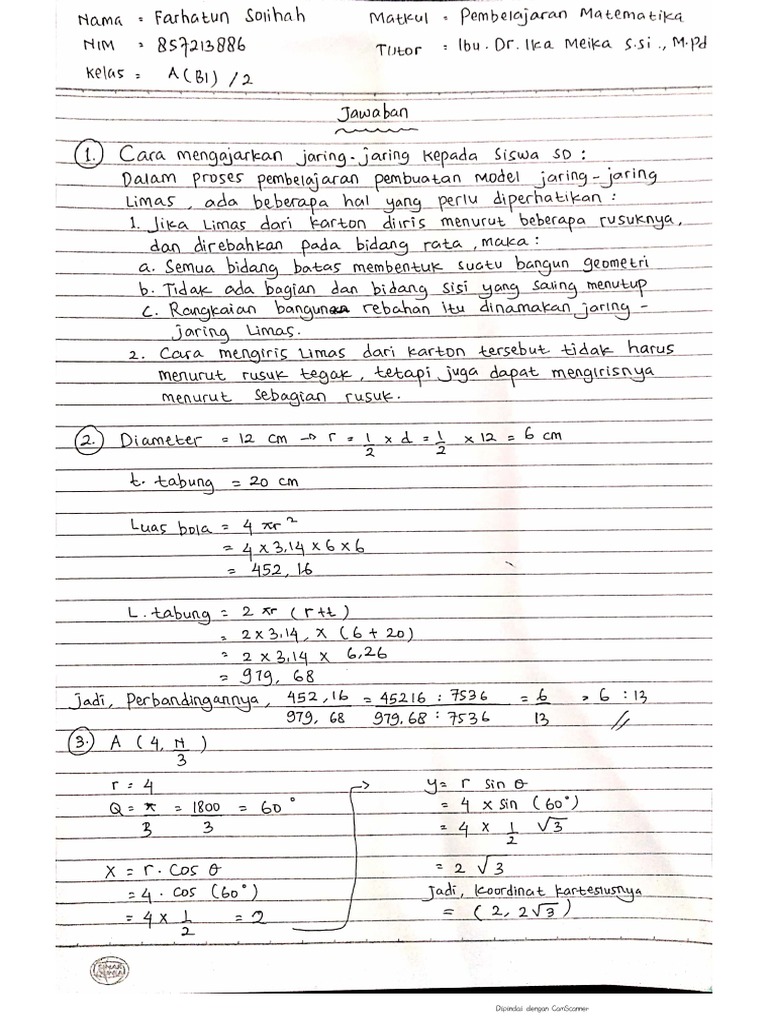 Nama = Farhatun Solihah
Matkul = Pembelajaran Matematika
NIM = 857213886
Tutor = Ibu. Dr. Ika Meika S.si., M.Pd
Kelas = A(BI) /2
Jawaban
1. Cara mengajarkan jaring-jaring kepada siswa SD :
Dalam proses pembelajaran pembuatan model jaring-jaring
Limas, ada beberapa hal yang perlu diperhatikan :
1. Jika Limas dari karton diiris menurut beberapa rusuknya,
dan direbahkan pada bidang rata, maka :
a. Semua bidang batas membentuk suatu bangun geometri
b. Tidak ada bagian dan bidang sisi yang saling menutup
c. Rangkaian bangun rebahan itu dinamakan jaring-
jaring Limas.
2. Cara mengiris Limas dari karton tersebut tidak harus
menurut rusuk tegak, tetapi juga dapat mengirisnya
menurut sebagian rusuk.
2. Diameter = 12 cm → r = 1/2 x d = 1/2 x 12 = 6 cm
t. tabung = 20 cm
Luas bola = 4 πr²
= 4 x 3,14 x 6 x 6
= 452, 16
L. tabung = 2 πr (r+t)
= 2 x 3,14, x (6 + 20)
= 2 x 3,14 x 6,26
= 979, 68
Jadi, Perbandingannya, 452,16/979,68 = 45216 : 7536/979,68 : 7536 = 6/13 = 6 : 13 //
3. A (4, π/3)
r = 4
Q = π/3 = 1800/3 = 60°
X = r. Cos θ
= 4. cos (60°)
= 4 x 1/2 = 2
y = r sin θ
= 4 x sin (60°)
= 4 x 1/2 √3
= 2 √3
Jadi, koordinat kartesiusnya
= (2, 2√3)
SINAR DUNIA
Dipindai dengan CamScanner